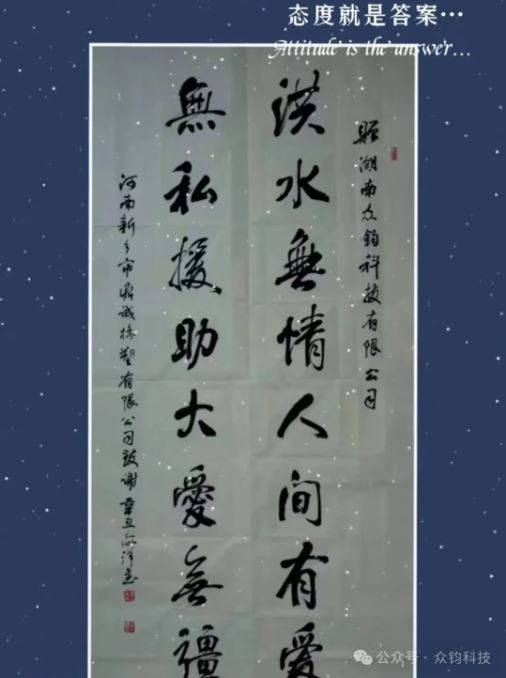 态度就是答案…
Attitude is the answer...
赠湖南众钧科技有限公司
洪水無情人间有爱
無私援助大愛無疆
河南新乡市鼎诚橡塑有限公司致谢 辛丑
公众号·众钧科技